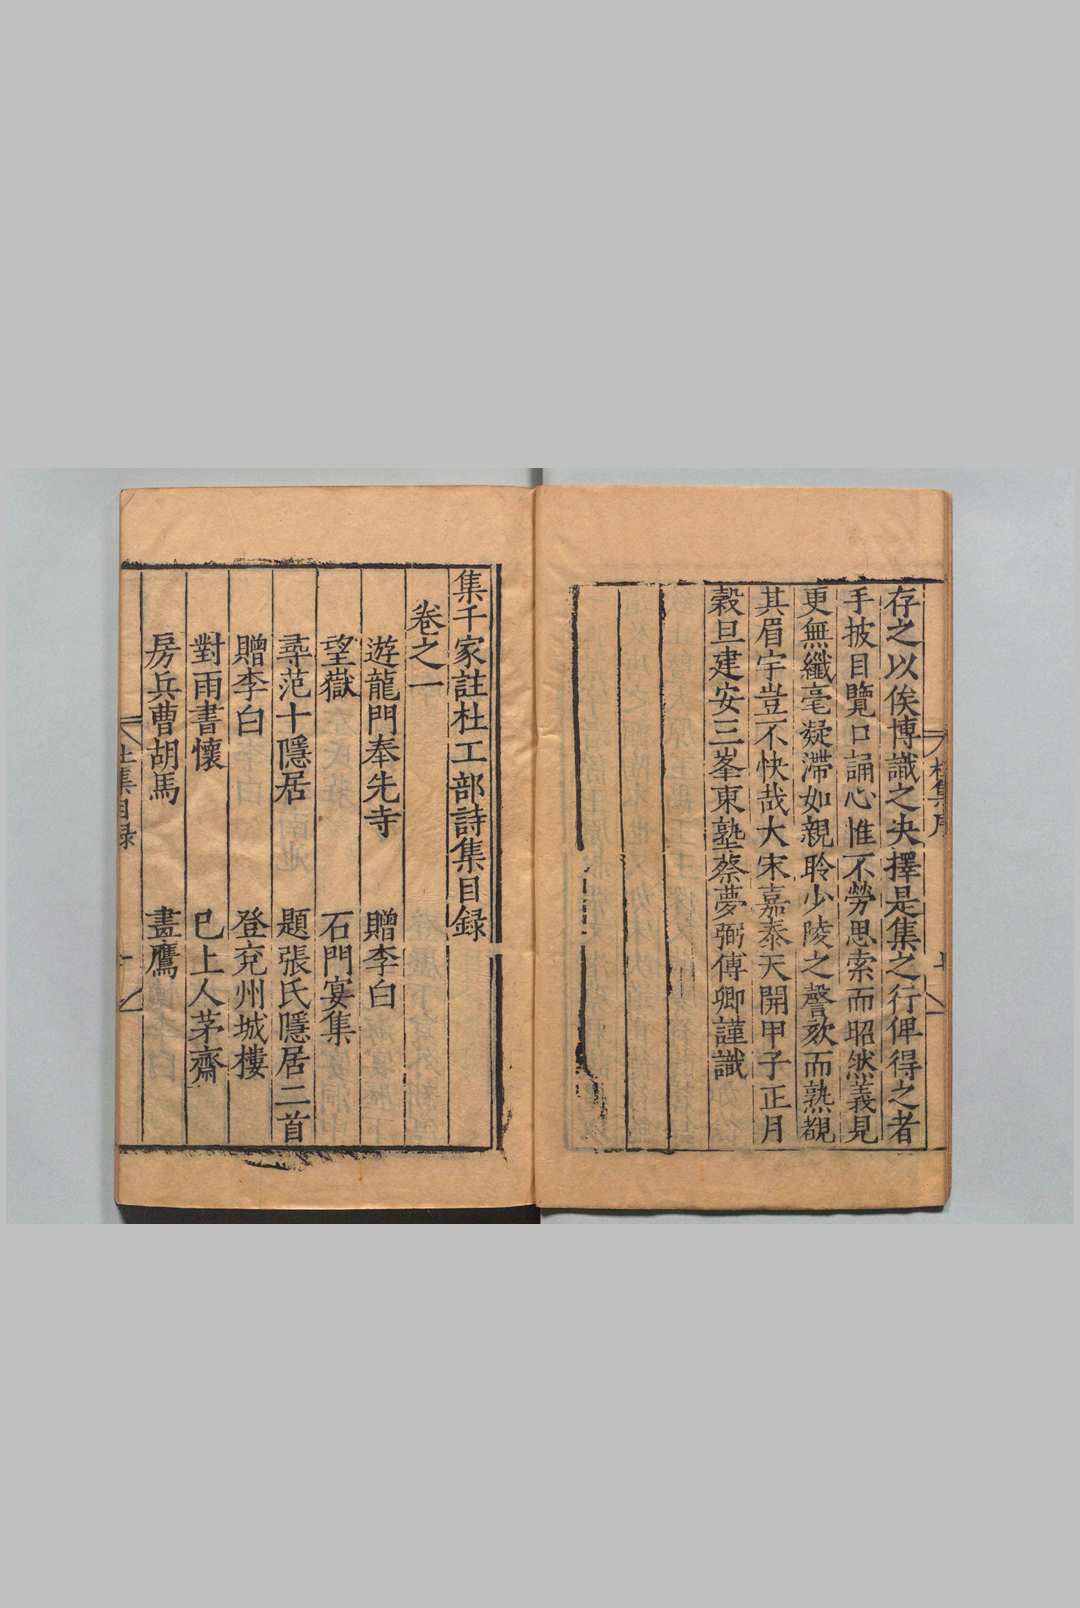 存之以俟博識之决擇是集之行俾得之者
手披目覽口誦心惟不勞思索而昭然義見
更無纖毫凝滯如親聆少陵之謦欬而熟覩
其眉宇豈不快哉大宋嘉泰天開甲子正月
穀旦建安三峯東塾蔡夢弼傅卿謹識
集千家註杜工部詩集目録
卷之一
遊龍門奉先寺 贈李白
望嶽 石門宴集
尋范十隱居 題張氏隱居二首
贈李白 登兖州城樓
對雨書懷 巳上人茅齋
房兵曹胡馬 畫鷹
杜集目録